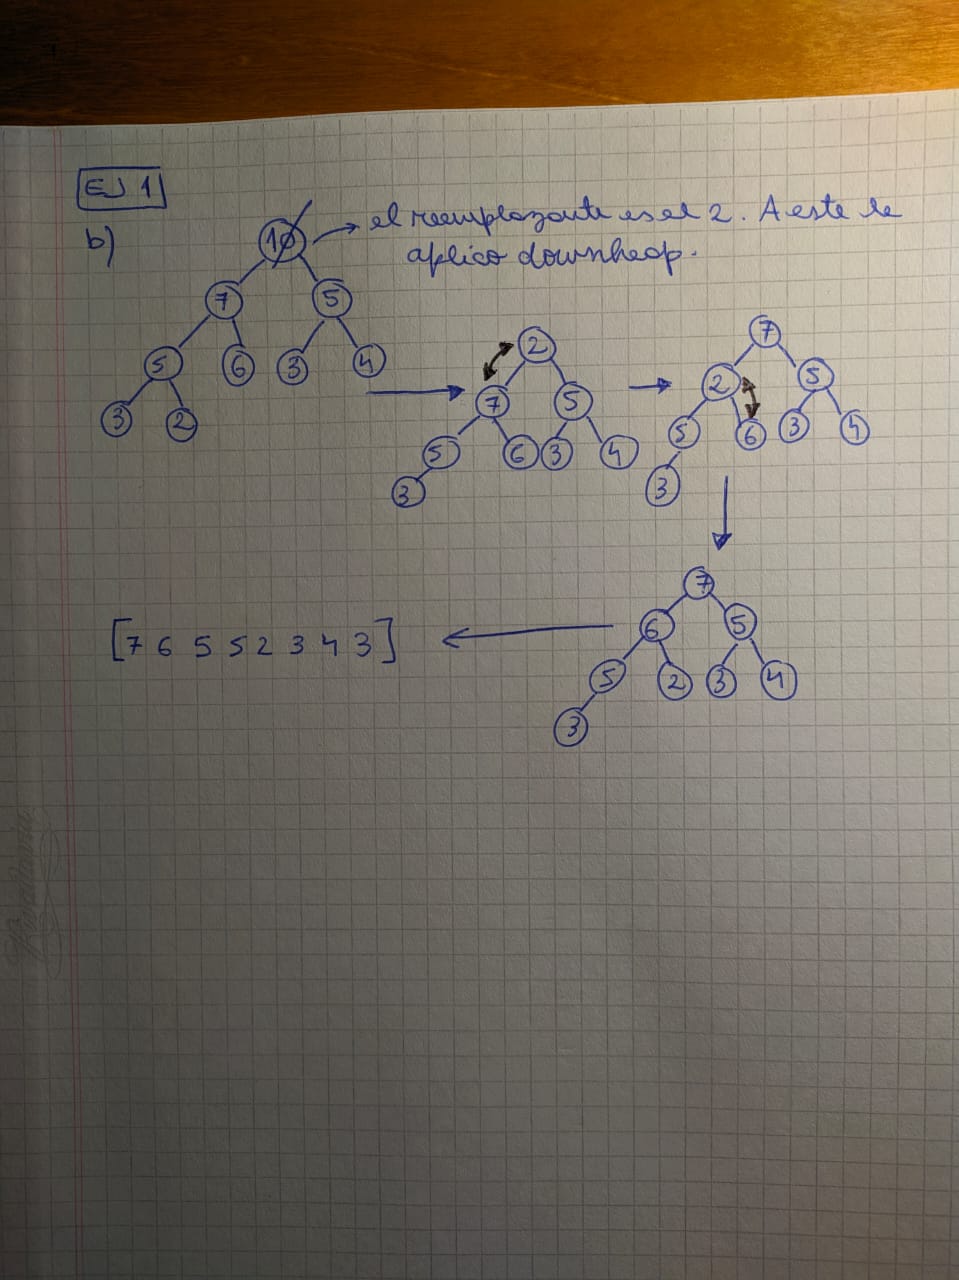 EJ 1
b)
10 → el reemplazante es el 2. A este le
aplico downheap.
7 5
5 6 3 4
3 2
2
7 5
5 6 3 4
3
7
2 5
5 6 3 4
3
7
6 5
5 2 3 4
3
[7 6 5 5 2 3 4 3]